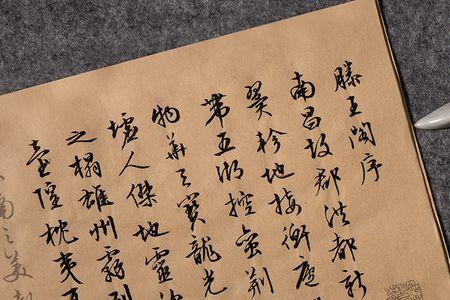 滕王閣序
南昌故郡洪都新
翼軫地接衡廬
帶五湖控蛮荆
物華天寶龍光
墟人傑地靈
之榻雄州霧列
臺隍枕夷夏
南之美